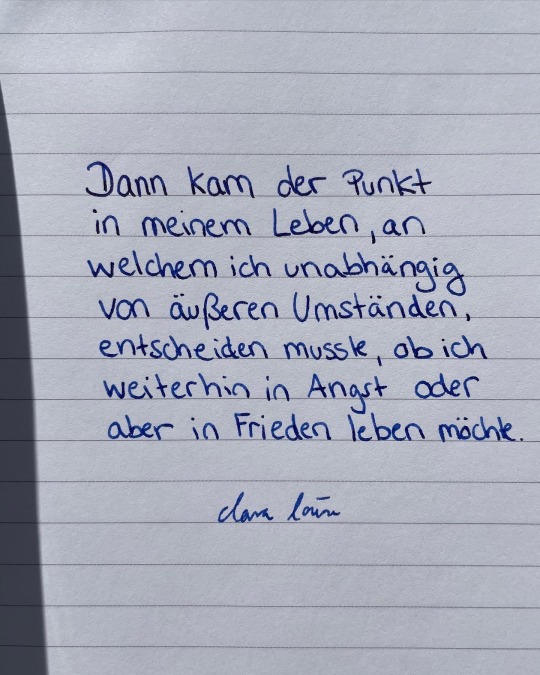 Dann kam der Punkt
in meinem Leben, an
welchem ich unabhängig
von äußeren Umständen,
entscheiden musste, ob ich
weiterhin in Angst oder
aber in Frieden leben möchte.
clara